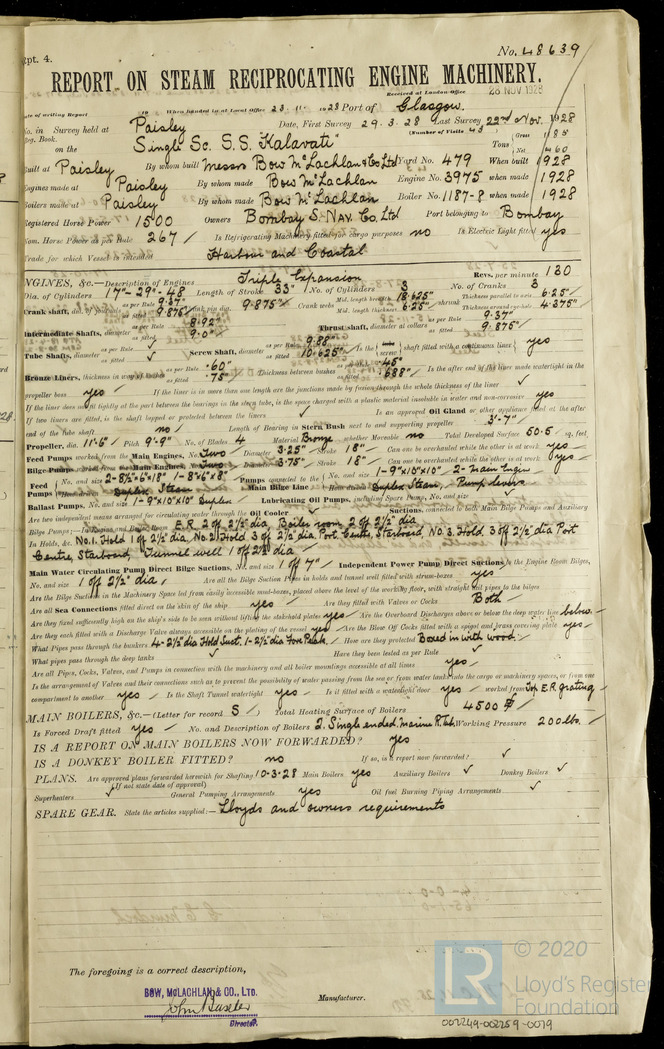 Rpt. 4.
No. 48639
REPORT ON STEAM RECIPROCATING ENGINE MACHINERY.
Received at London Office 28 NOV 1928
Date of writing Report 19 When handed in at Local Office 23.11.1928 Port of Glasgow.
No. in Survey held at Paisley Date, First Survey 29.3.28 Last Survey 22nd Nov. 1928
Reg. Book. (Number of Visits 43)
on the Single Sc. S.S. "Kalavati" Tons Gross
Net 460
Built at Paisley By whom built Messrs Bow McLachlan & Co Ltd Yard No. 479 When built 1928
Engines made at Paisley By whom made Bow McLachlan Engine No. 3975 when made 1928
Boilers made at Paisley By whom made Bow McLachlan Boiler No. 1187-8 when made 1928
Registered Horse Power 1500 Owners Bombay S. Nav. Co. Ltd Port belonging to Bombay
Nom. Horse Power as per Rule 267 Is Refrigerating Machinery fitted for cargo purposes no Is Electric Light fitted yes
Trade for which Vessel is intended Harbour and Coastal
ENGINES, &c.—Description of Engines Triple Expansion Revs. per minute 130
Dia. of Cylinders 17"-29"-48 Length of Stroke 33" No. of Cylinders 3 No. of Cranks 3
Crank shaft, dia. of journals as per Rule 9.37" as fitted 9.875" Crank pin dia. 9.875" Crank webs Mid. length breadth 18.625" Mid. length thickness 6.25" shrunk Thickness parallel to axis 6.25" Thickness around eye-hole 4.375"
Intermediate Shafts, diameter as per Rule 8.92" as fitted 9.0" Thrust shaft, diameter at collars as per Rule 9.37" as fitted 9.875"
Tube Shafts, diameter as per Rule as fitted ✓ Screw Shaft, diameter as per Rule 9.85" as fitted 10.625" Is the screw shaft fitted with a continuous liner yes
Bronze Liners, thickness in way of bushes as per Rule .60" as fitted .75" Thickness between bushes as per Rule .45" as fitted .688" Is the after end of the liner made watertight in the
propeller boss yes If the liner is in more than one length are the junctions made by fusion through the whole thickness of the liner ✓
If the liner does not fit tightly at the part between the bearings in the stern tube, is the space charged with a plastic material insoluble in water and non-corrosive yes
If two liners are fitted, is the shaft lapped or protected between the liners ✓ Is an approved Oil Gland or other appliance fitted at the after
end of the tube shaft no Length of Bearing in Stern Bush next to and supporting propeller 3'-7"
Propeller, dia. 11'-6" Pitch 9'-9" No. of Blades 4 Material Bronze whether Moveable no Total Developed Surface 50.5 sq. feet
Feed Pumps worked from the Main Engines, No. Two Diameter 3.25" Stroke 18" Can one be overhauled while the other is at work yes
Bilge Pumps worked from the Main Engines, No. Two Diameter 3.75" Stroke 18" Can one be overhauled while the other is at work yes
Feed Pumps No. and size 2-8½"x6"x18" 1-8"x6"x8" Pumps connected to the Main Bilge Line No. and size 1-9"x10"x10" 2-main Engine
How driven Duplex Steam How driven Duplex Steam, Pump levers
Ballast Pumps, No. and size 1-9"x10"x10" Duplex Lubricating Oil Pumps, including Spare Pump, No. and size ✓
Are two independent means arranged for circulating water through the Oil Cooler ✓ Suctions, connected to both Main Bilge Pumps and Auxiliary
Bilge Pumps;—In Engine and Boiler Room E.R. 2 off 2½" dia, Boiler room 2 off 2½ dia
In Holds, &c. No.1. Hold 1 off 2½ dia, No.2 Hold 3 off 2½ dia, Port, Centre, Starboard, No.3. Hold. 3 off 2½ dia Port
Centre, Starboard, Tunnel well 1 off 2½ dia
Main Water Circulating Pump Direct Bilge Suctions, No. and size 1 off 7" Independent Power Pump Direct Suctions to the Engine Room Bilges,
No. and size 1 off 2½" dia Are all the Bilge Suction Pipes in holds and tunnel well fitted with strum-boxes yes
Are the Bilge Suctions in the Machinery Space led from easily accessible mud-boxes, placed above the level of the working floor, with straight tail pipes to the bilges yes
Are all Sea Connections fitted direct on the skin of the ship yes Are they fitted with Valves or Cocks Both
Are they fixed sufficiently high on the ship's side to be seen without lifting the stokehold plates yes Are the Overboard Discharges above or below the deep water line below.
Are they each fitted with a Discharge Valve always accessible on the plating of the vessel yes Are the Blow Off Cocks fitted with a spigot and brass covering plate yes
What Pipes pass through the bunkers 4-2½ dia Hold Suct. 1-2½ dia Fore Peak. How are they protected Boxed in with wood.
What pipes pass through the deep tanks ✓ Have they been tested as per Rule ✓
Are all Pipes, Cocks, Valves, and Pumps in connection with the machinery and all boiler mountings accessible at all times yes
Is the arrangement of Valves and their connections such as to prevent the possibility of water passing from the sea or from water tanks into the cargo or machinery spaces, or from one
compartment to another yes Is the Shaft Tunnel watertight yes Is it fitted with a watertight door yes worked from Top E.R. grating
MAIN BOILERS, &c.—(Letter for record S) Total Heating Surface of Boilers 4500
Is Forced Draft fitted yes No. and Description of Boilers 2. Single ended marine R.Tub. Working Pressure 200 lbs.
IS A REPORT ON MAIN BOILERS NOW FORWARDED? yes
IS A DONKEY BOILER FITTED? no If so, is a report now forwarded? ✓
PLANS. Are approved plans forwarded herewith for Shafting 10-3-28 Main Boilers yes Auxiliary Boilers ✓ Donkey Boilers ✓
(If not state date of approval)
Superheaters ✓ General Pumping Arrangements yes Oil fuel Burning Piping Arrangements ✓
SPARE GEAR. State the articles supplied:— Lloyds and owners requirements
The foregoing is a correct description,
BOW, McLACHLAN & CO., LTD.
Manufacturer.
Director.
© 2020
LR
Lloyd's Register
Foundation
002249-002259-0079